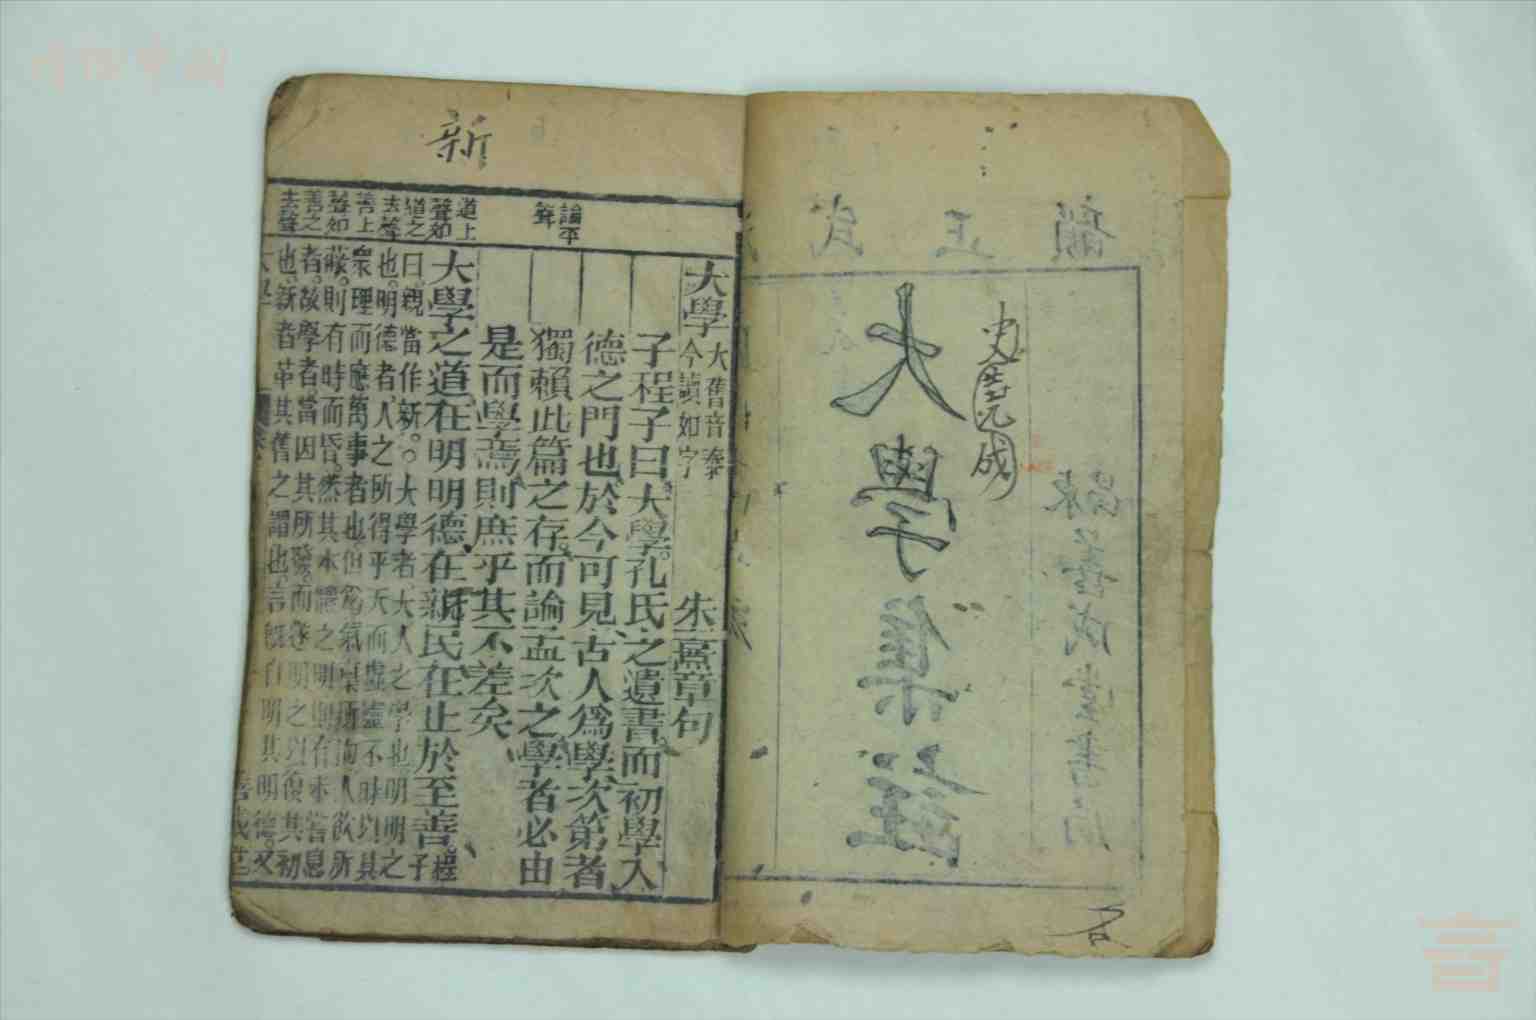 大學集註
善成堂書局
新
論平
聲
道上
聲如
道之
去聲
善上
聲如
善之
去聲
大學 大舊音泰 今讀如字 朱熹章句
子程子曰、大學孔氏之遺書、而初學入
德之門也、於今可見古人為學次第者、
獨賴此篇之存、而論孟次之、學者必由
是而學焉、則庶乎其不差矣、
大學之道、在明明德、在親民、在止於至善、程子
曰、親當作新。。大學者、大人之學也、明明之
也。明德者、人之所得乎天而虛靈不昧以具
衆理而應萬事者也但為氣稟所拘人欲所
蔽。則有時而昏。然其本體之明則有未嘗息
者。故學者當因其所發。而遂明之以復其初
也。新者革其舊之謂也、言既自明其明德。又
大學
善成堂